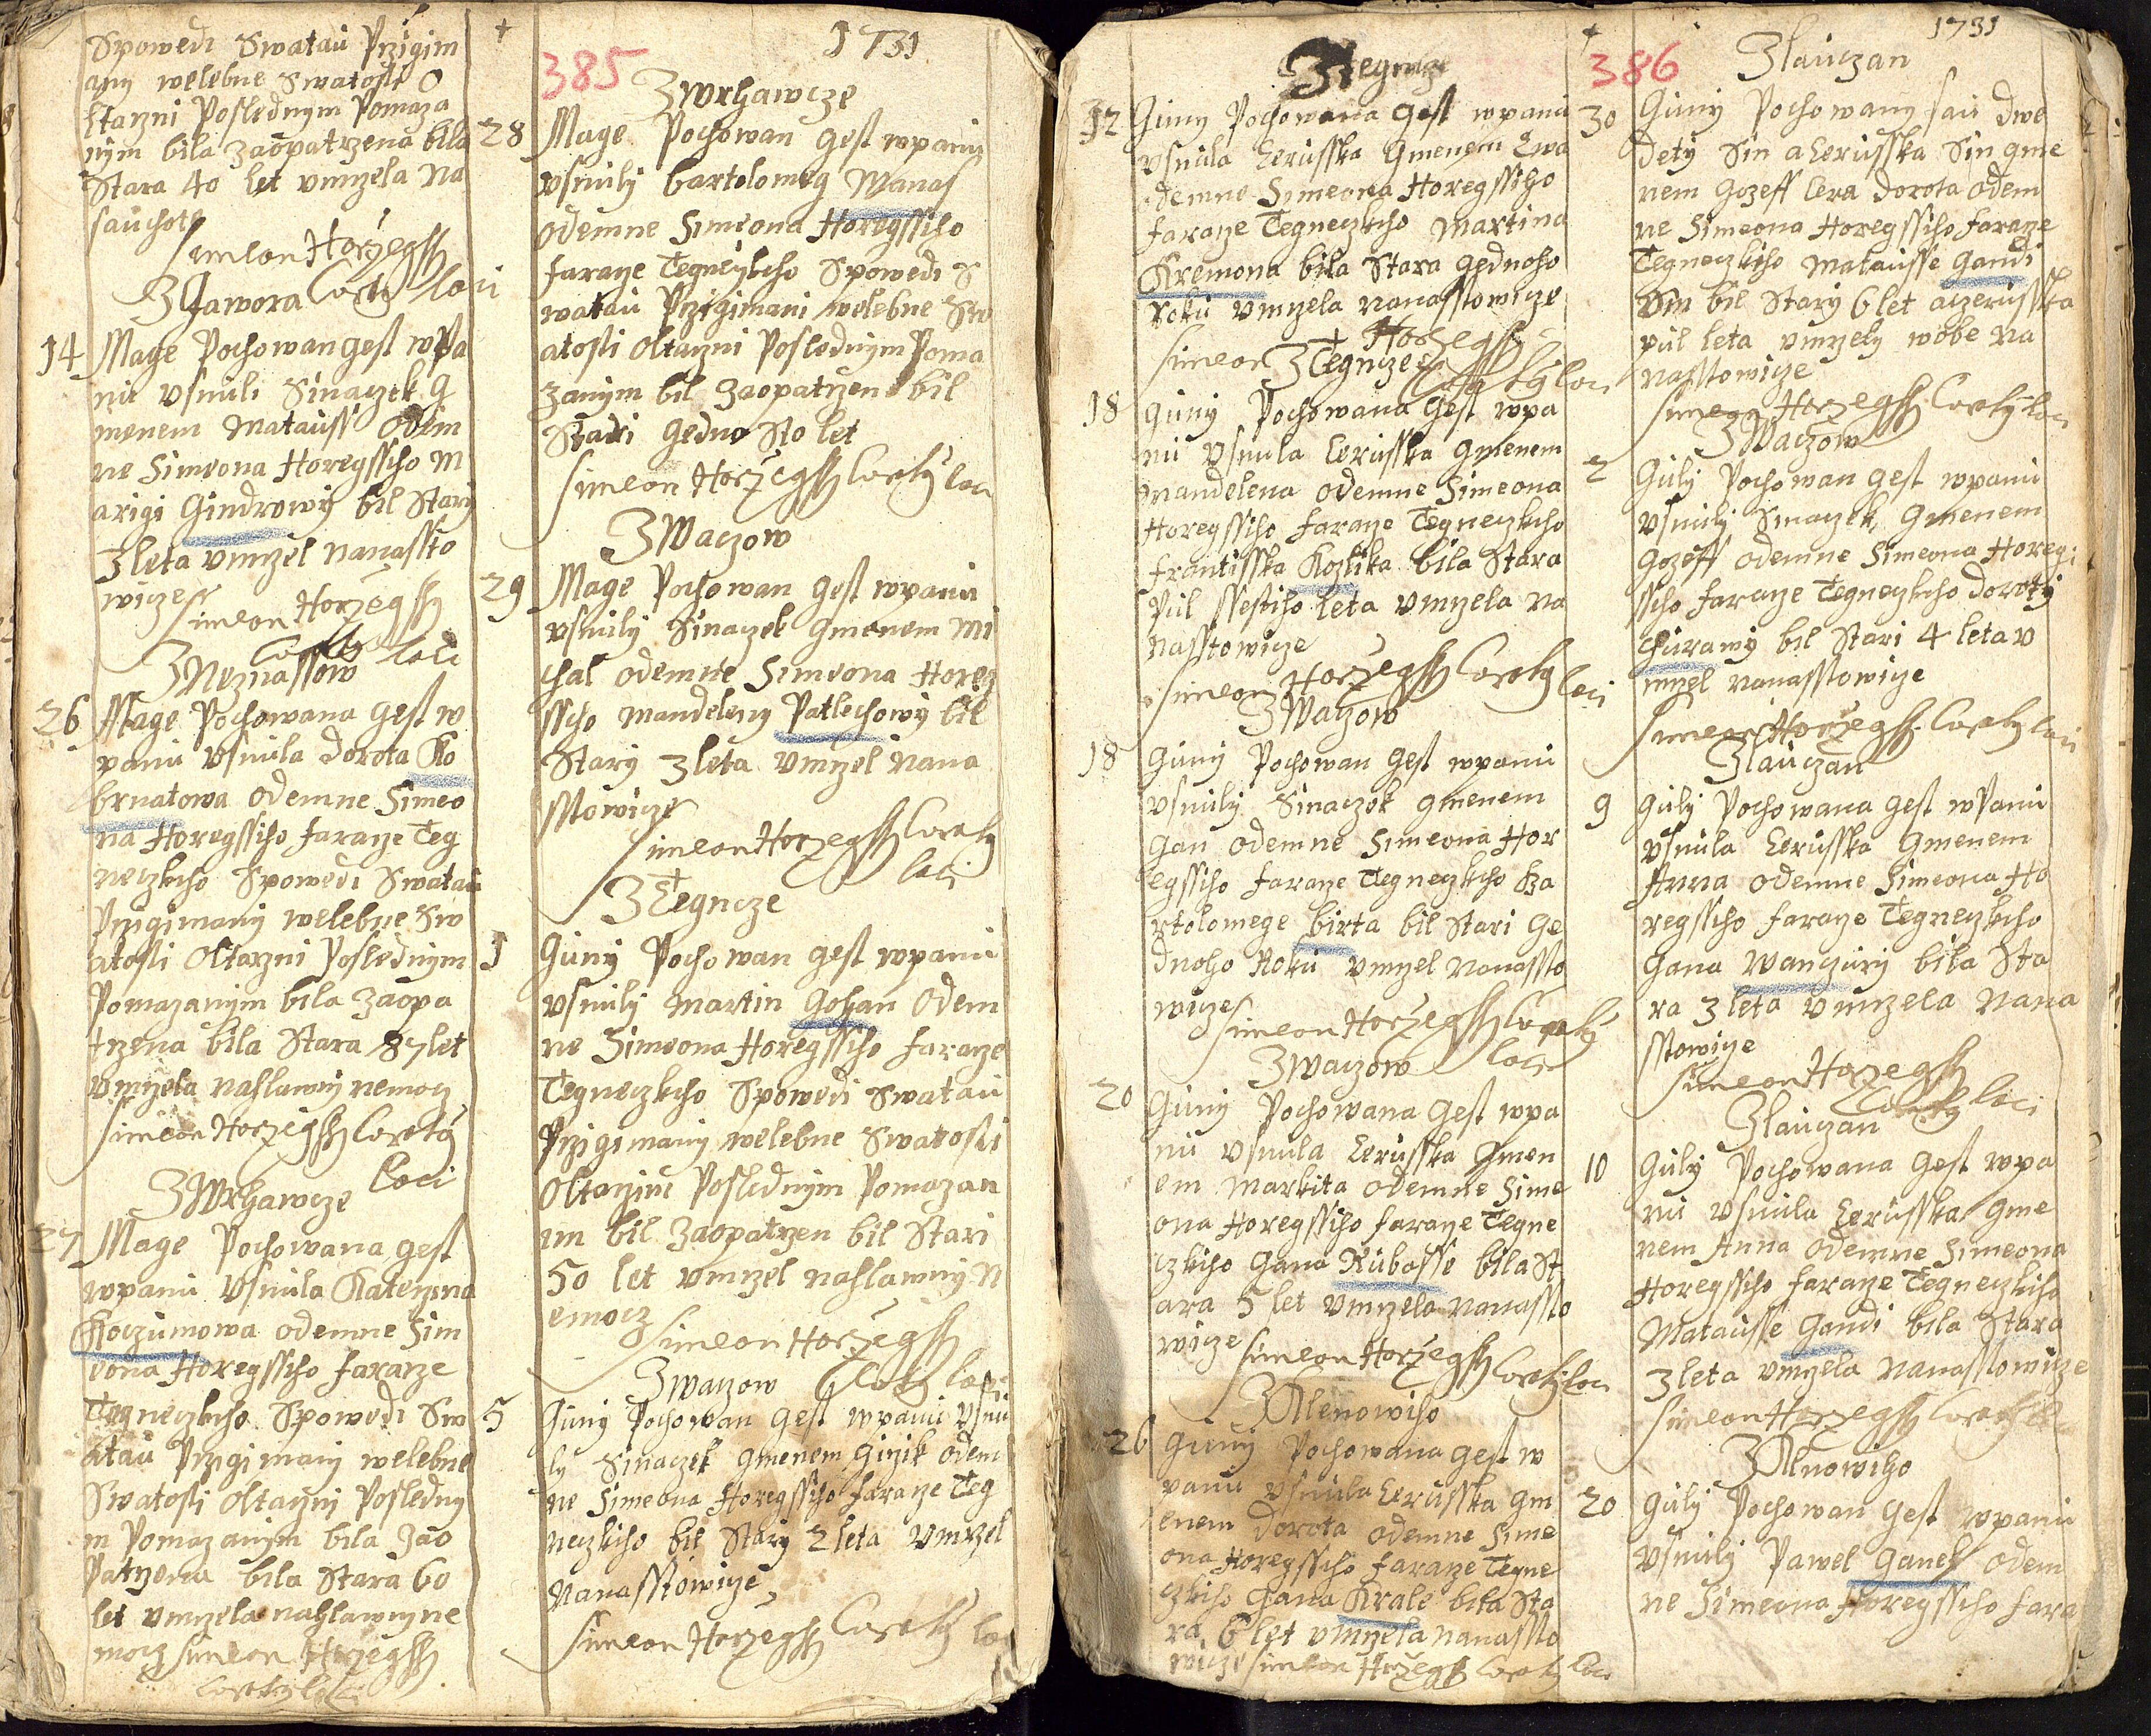 Spowedi Swatau Przigim
any welebne Swatosti O
ltarzni Poslednym Pomaza
nym bila zaopatrzena bila
Stara 40 let vmrzela Na
sauchote
Simeon Horzegssy
Loci
ZJawora
14 Mage Pochowan gest wPa
nu vsnuli Sinaczek g
menem Matauss Odem
ne Simeona Horegssiho M
arigi Gindrowy bil Stary
3 leta vmrzel nanassto
wicze
Simeon Horzegssy
loci
ZNeznassow
26 Mage Pochowana gest w
panu vsnula dorota Ko
brnatowa odemne Simeo
na Horegssiho faraze Teg
neczkiho Spowedi Swatau
Przigimany welebne Sw
atosti Oltarzni Poslednym
Pomazanym bila zaopa
trzena bila Stara 87 let
vmrzela nahlawny nemocz
Simeon Horzegssy Curatg
Loci
ZWrhawcze
27 Mage Pochowana gest
wpanu vsnula Katerzina
Koczumowa odemne Sim
eona Horegssiho faraze
Tegneczkiho Spowedi Sw
atau Przigimany welebne
Swatosti oltarzny Posledny
m Pomazanym bila Zao
Patrzena bila Stara 60
let vmrzela nahlawny ne
mocz Simeon Horzegssy
Curatg loci
+
1731
385
ZWrhawcze
28 Mage Pochowan gest wpanu
vsnuly bartolomeg Manas
odemne Simeona Horegssiho
faraze Tegneczkiho Spowedi S
watau Przigimani welebne Sw
atosti Oltarzni Poslednym Poma
zanym bil zaopatrzen bil
Stari gedno Sto let
Simeon Horzegssy Curatg loci
ZWaczow
29 Mage Pochowan gest wpanu
vsnuly Sinaczek gmenem Mi
chal odemne Simeona Horeg
ssiho Mandeleny Patlechowy bil
Stary 3 leta vmrzel nana
sstowicze
Simeon Horzegssy Curatg
loci
ZTegncze
1 Guny Pochowan gest wpanu
vsnuly Martin Gohan Odem
ne Simeona Horegssiho faraze
Tegneczkiho Spowedi Swatau
Przigimany welebne Swatosti
Oltarzni Poslednym Pomazan
im bil zaopatrzen bil Stari
50 let vmrzel nahlawny N
emocz
Simeon Horzegssy
Curatg loci
Zwaczow
5 Guny Pochowan gest wpanu vsnu
ly Sinaczek gmenem girzik odem
ne Simeona Horegssiho faraze Teg
neczkiho bil Stary 2 leta vmrzel
Nanasstowicze
Simeon Horzegssy Curatg loci
ZTegncze
12 Guny Pochowana gest wpanu
vsnula Cerusska gmenem Ewa
odemne Simeona Horegssiho
faraze Tegneczkiho Martina
Kremona bila Stara gednoho
Roku vmrzela nanasstowicze
Simeon Horzegssy
Curatg loci
ZTegncze
18 Guny Pochowana gest wpa
nu vsnula Cerusska gmenem
Mandelena odemne Simeona
Horegssiho faraze Tegneczkiho
frantisska Kozlika bila Stara
Pul ssestiho leta vmrzela Na
nasstowicze
Simeon Horzegssy Curatg loci
ZWaczow
18 Guny Pochowan gest wpanu
vsnuly Sinaczek gmenem
Gan odemne Simeona Hor
egssiho faraze Tegneczkiho Ba
rtolomege birta bil Stari ge
dnoho Roku vmrzel nanassto
wicze
Simeon Horzegssy Curatg
loci
ZWaczow
20 Guny Pochowana gest wpa
nu vsnula Cerusska gmen
em Markita odemne Sime
ona Horegssiho faraze Tegne
czkiho Gana Kubasse bila St
ara 5 let vmrzela nanassto
wicze Simeon Horzegssy Curatg loci
ZAlenowiho
26 Guny Pochowana gest w
panu vsnula Cerusska gm
enem dorota odemne Sime
ona Horegssiho faraze Tegne
czkiho Gana Krale bila Sta
ra 6 let vmrzela nanassto
wicze Simeon Horzegssy Curatg loci
+
1731
386
Zlauczan
30 Guny Pochowany sau dwe
dety Sin a Cerusska Sin gme
nem Gozeff Cera dorota Odem
ne Simeona Horegssiho faraze
Tegneczkiho Matausse Gandi
Sin bil Stary 6 let aczerusska
pul leta vmrzely wobe Na
nasstowicze
Simeon Horzegssy Curatg loci
ZWaczow
2 Guly Pochowan gest wpanu
vsnuly Sinaczek gmenem
Gozeff odemne Simeona Horeg
ssiho faraze Tegneczkiho doroty
Churawy bil Stari 4 leta v
mrzel nanasstowicze
Simeon Horzegssy Curatg loci
Zlauczan
9 Guly Pochowana gest wPanu
vsnula Cerusska gmenem
Anna odemne Simeona Ho
regssiho faraze Tegneczkiho
Gana Wanzury bila Sta
ra 3 leta vmrzela Nana
sstowicze
Simeon Horzegssy
Curatg loci
Zlauczan
10 Guly Pochowana gest wpa
nu vsnula Cerusska gme
nem Anna odemne Simeona
Horegssiho faraze Tegneczkiho
Matausse Gandi bila Stara
3 leta vmrzela nanasstowicze
Simeon Horzegssy Curatg
ZAlnowiho
20 Guly Pochowan gest wpanu
vsnuly Pawel Ganek odem
ne Simeona Horegssiho fara